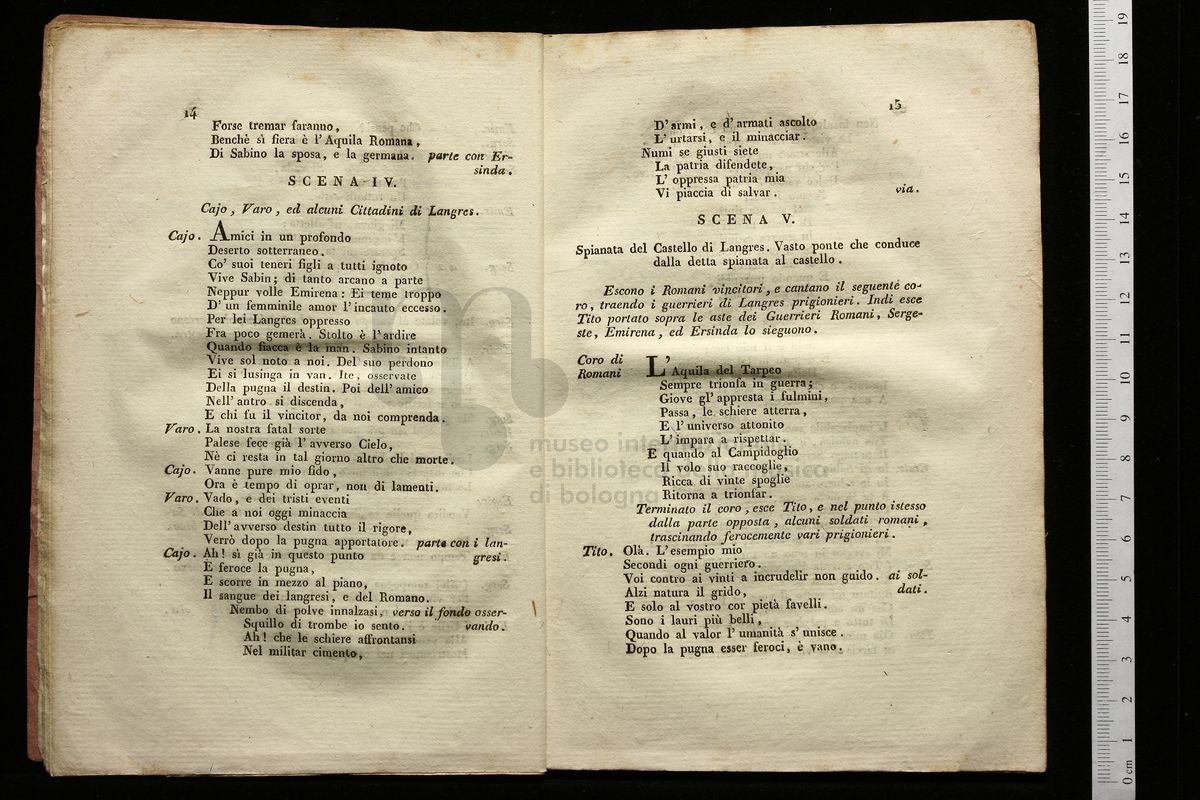 14
Forse tremar faranno,
Benchè sì fiera è l'Aquila Romana,
Di Sabino la sposa, e la germana. parte con Er-
sinda.
SCENA IV.
Cajo, Varo, ed alcuni Cittadini di Langres.
Cajo. Amici in un profondo
Deserto sotterraneo.
Co' suoi teneri figli a tutti ignoto
Vive Sabin; di tanto arcano a parte
Neppur volle Emirena: Ei teme troppo
D' un femminile amor l'incauto eccesso.
Per lei Langres oppresso
Fra poco gemerà. Stolto è l'ardire
Quando fiacca è la man. Sabino intanto
Vive sol noto a noi. Del suo perdono
Ei si lusinga in van. Ite, osservate
Della pugna il destin. Poi dell'amico
Nell'antro si discenda,
E chi fu il vincitor, da noi comprenda.
Varo. La nostra fatal sorte
Palese fece già l'avverso Cielo,
Nè ci resta in tal giorno altro che morte.
Cajo. Vanne pure mio fido,
Ora è tempo di oprar, non di lamenti.
Varo. Vado, e dei tristi eventi
Che a noi oggi minaccia
Dell'avverso destin tutto il rigore,
Verrò dopo la pugna apportatore. parte con i lan-
gresi.
Cajo. Ah! sì già in questo punto
E feroce la pugna,
E scorre in mezzo al piano,
Il sangue dei langresi, e del Romano.
Nembo di polve innalzasi, verso il fondo osser-
Squillo di trombe io sento. vando.
Ah! che le schiere affrontansi
Nel militar cimento,
15
D'armi, e d'armati ascolto
L'urtarsi, e il minacciar.
Numi se giusti siete
La patria difendete,
L' oppressa patria mia
Vi piaccia di salvar. via.
SCENA V.
Spianata del Castello di Langres. Vasto ponte che conduce
dalla detta spianata al castello.
Escono i Romani vincitori, e cantano il seguente co-
ro, traendo i guerrieri di Langres prigionieri. Indi esce
Tito portato sopra le aste dei Guerrieri Romani, Serge-
ste, Emirena, ed Ersinda lo sieguono.
Coro di Romani
L'Aquila del Tarpeo
Sempre trionfa in guerra;
Giove gl'appresta i fulmini,
Passa, le schiere atterra,
E l'universo attonito
L'impara a rispettar.
E quando al Campidoglio
Il volo suo raccoglie,
Ricca di vinte spoglie
Ritorna a trionfar.
Terminato il coro, esce Tito, e nel punto istesso
dalla parte opposta, alcuni soldati romani,
trascinando ferocemente vari prigionieri.
Tito. Olà. L'esempio mio
Secondi ogni guerriero.
Voi contro ai vinti a incrudelir non guido. ai sol-
Alzi natura il grido, dati.
E solo al vostro cor pietà favelli.
Sono i lauri più belli,
Quando al valor l'umanità s'unisce.
Dopo la pugna esser feroci, è vano.
museo internazionale
e biblioteca della musica
di bologna
0 cm 1 2 3 4 5 6 7 8 9 10 11 12 13 14 15 16 17 18 19